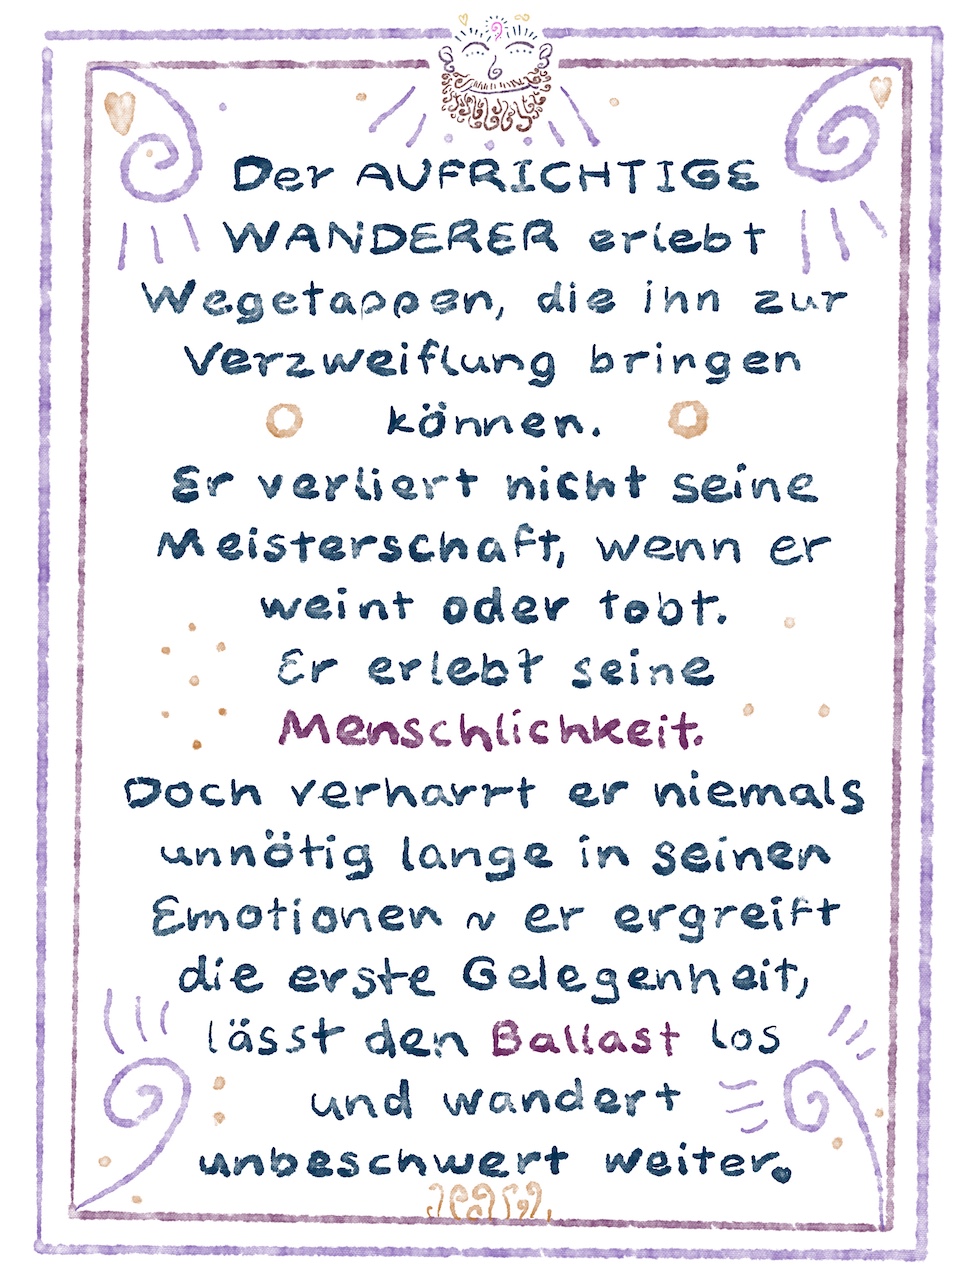 Der AUFRICHTIGE
WANDERER erlebt
Wegetappen, die ihn zur
Verzweiflung bringen
können.
Er verliert nicht seine
Meisterschaft, wenn er
weint oder tobt.
Er erlebt seine
Menschlichkeit.
Doch verharrt er niemals
unnötig lange in seinen
Emotionen ~ er ergreift
die erste Gelegenheit,
lässt den Ballast los
und wandert
unbeschwert weiter.